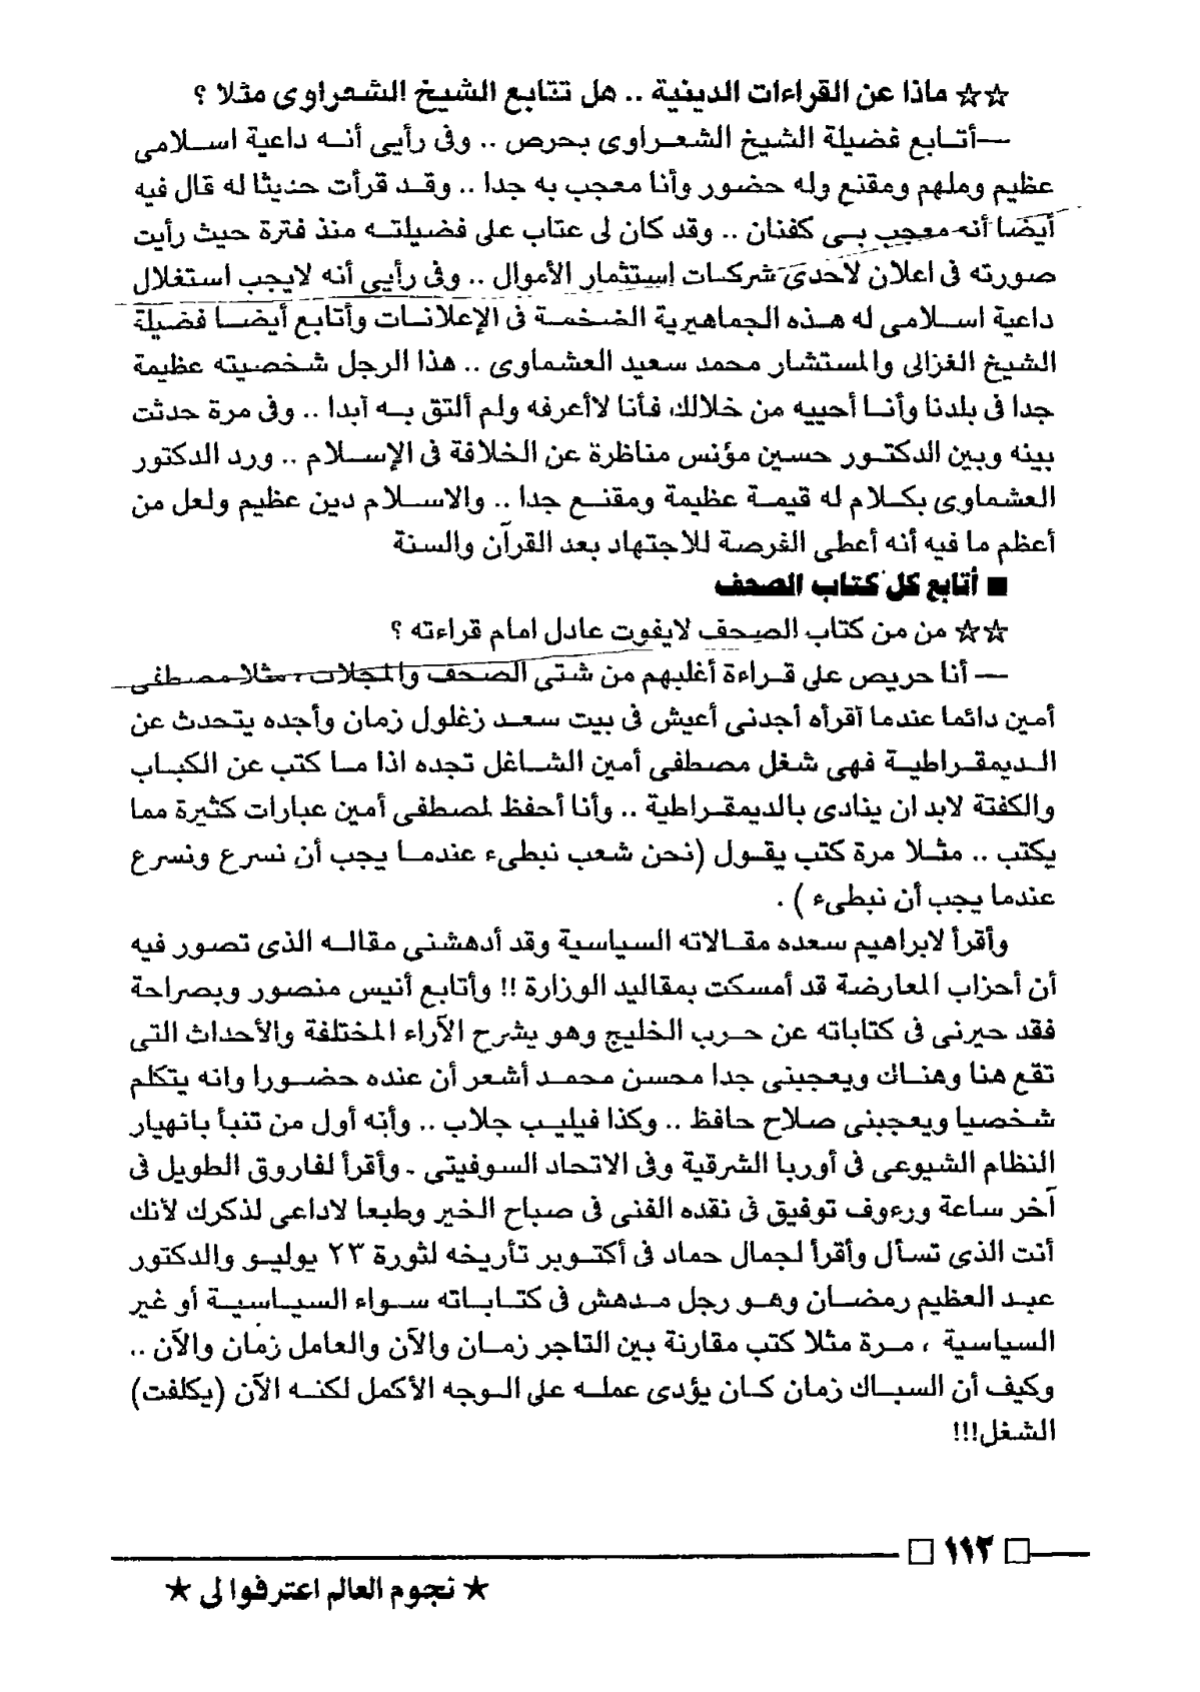 ☆☆ ماذا عن القراءات الدينية .. هل تتابع الشيخ الشعراوى مثلا ؟
—أتابع فضيلة الشيخ الشعراوى بحرص .. وفى رأيى أنه داعية اسلامى
عظيم وملهم ومقنع وله حضور وأنا معجب به جدا .. وقد قرأت حديثا له قال فيه
أيضا أنه معجب بى كفنان .. وقد كان لى عتاب على فضيلته منذ فترة حيث رأيت
صورته فى اعلان لاحدى شركات إستثمار الأموال .. وفى رأيى أنه لايجب استغلال
داعية اسلامى له هذه الجماهيرية الضخمة فى الإعلانات وأتابع أيضا فضيلة
الشيخ الغزالى والمستشار محمد سعيد العشماوى .. هذا الرجل شخصيته عظيمة
جدا فى بلدنا وأنا أحييه من خلالك فأنا لاأعرفه ولم ألتق به أبدا .. وفى مرة حدثت
بينه وبين الدكتور حسين مؤنس مناظرة عن الخلافة فى الإسلام .. ورد الدكتور
العشماوى بكلام له قيمة عظيمة ومقنع جدا .. والاسلام دين عظيم ولعل من
أعظم ما فيه أنه أعطى الفرصة للاجتهاد بعد القرآن والسنة
■ أتابع كل كتاب الصحف
☆☆ من من كتاب الصحف لايفوت عادل امام قراءته ؟
— أنا حريص على قراءة أغلبهم من شتى الصحف والمجلات ، مثلا مصطفى
أمين دائما عندما أقرأه أجدنى أعيش فى بيت سعد زغلول زمان وأجده يتحدث عن
الديمقراطية فهى شغل مصطفى أمين الشاغل تجده اذا ما كتب عن الكباب
والكفتة لابد ان ينادى بالديمقراطية .. وأنا أحفظ لمصطفى أمين عبارات كثيرة مما
يكتب .. مثلا مرة كتب يقول (نحن شعب نبطىء عندما يجب أن نسرع ونسرع
عندما يجب أن نبطىء ) .
وأقرأ لابراهيم سعده مقالاته السياسية وقد أدهشنى مقاله الذى تصور فيه
أن أحزاب المعارضة قد أمسكت بمقاليد الوزارة !! وأتابع أنيس منصور وبصراحة
فقد حيرنى فى كتاباته عن حرب الخليج وهو يشرح الآراء المختلفة والأحداث التى
تقع هنا وهناك ويعجبنى جدا محسن محمد أشعر أن عنده حضورا وانه يتكلم
شخصيا ويعجبنى صلاح حافظ .. وكذا فيليب جلاب .. وأنه أول من تنبأ بانهيار
النظام الشيوعى فى أوربا الشرقية وفى الاتحاد السوفيتى . وأقرأ لفاروق الطويل فى
آخر ساعة ورءوف توفيق فى نقده الفنى فى صباح الخير وطبعا لاداعى لذكرك لأنك
أنت الذى تسأل وأقرأ لجمال حماد فى أكتوبر تأريخه لثورة ٢٣ يوليو والدكتور
عبد العظيم رمضان وهو رجل مدهش فى كتاباته سواء السياسية أو غير
السياسية ، مرة مثلا كتب مقارنة بين التاجر زمان والآن والعامل زمان والآن ..
وكيف أن السباك زمان كان يؤدى عمله على الوجه الأكمل لكنه الآن (يكلفت)
الشغل!!!
□ ١١٣ □
★ نجوم العالم اعترفوا لى ★